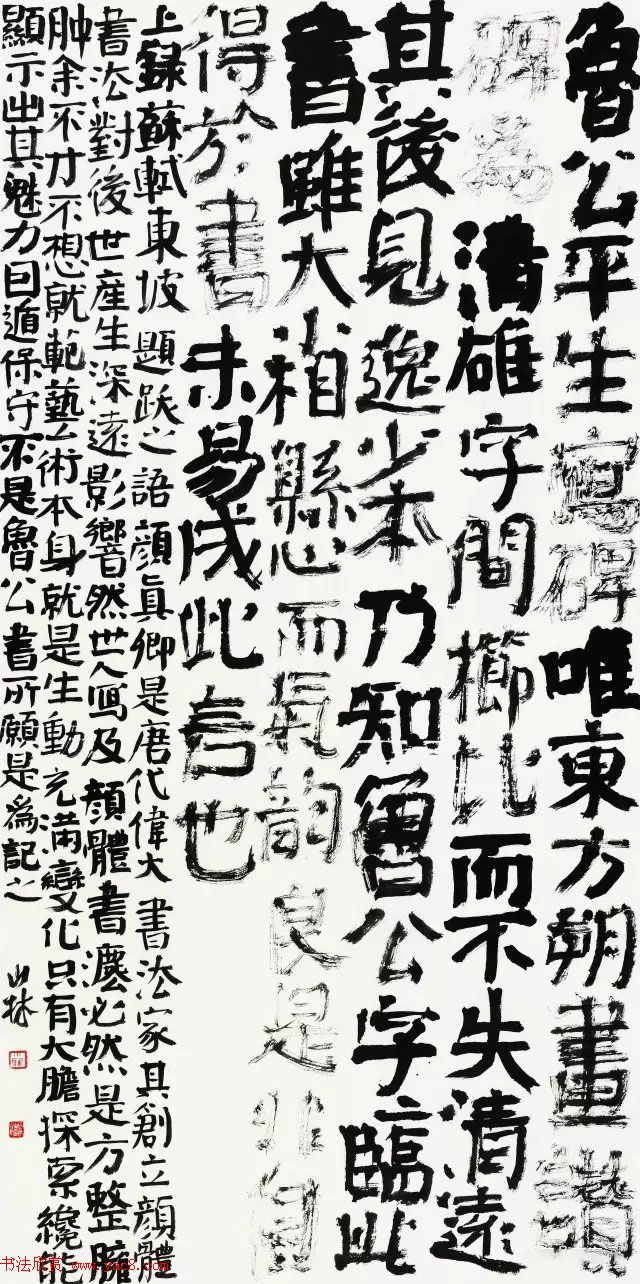 魯公平生寫碑唯東方朔畫讚
碑為清雄字間櫛比而不失清遠
其後見逸少本乃知魯公字〻臨此
書雖大小相懸而氣韵良是非自
得於書未易成此言也
上錄蘇軾東坡題跋之語顏真卿是唐代偉大書法家其創立顏體
書法對後世產生深遠影響然世人寫及顏體書灋必然是方整臃
肿余不才不想就範藝術本身就是生動充滿變化只有大膽探索纔能
顯示出其魅力因循保守不是魯公書所願是為記之
山林
书法欣赏 www.yac8.com